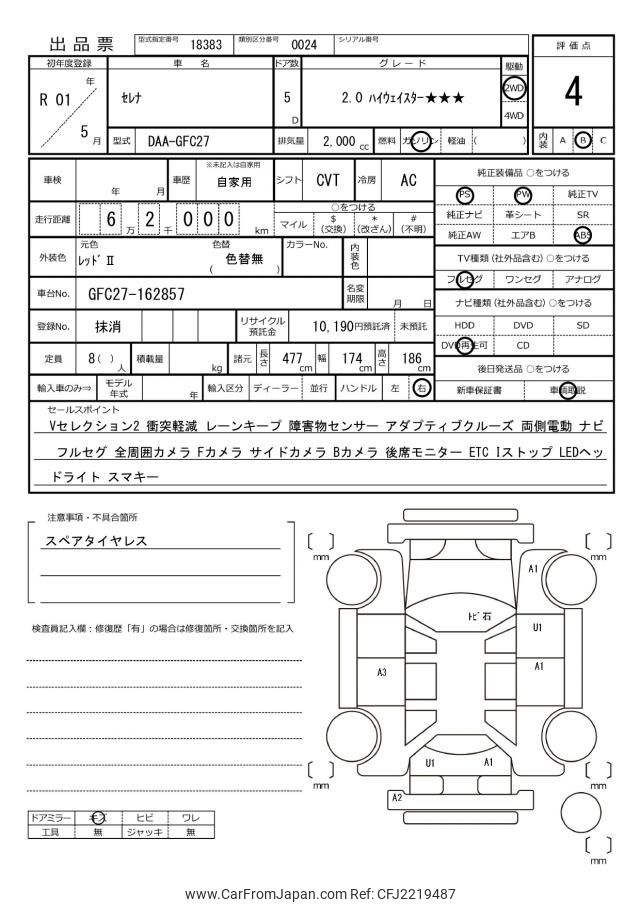 出品票
型式指定番号 18383 類別区分番号 0024 シリアル番号
評価点
4
内装 A B C
初年度登録 車名 ドア数 グレード 駆動
R 01 年 5 月
セレナ
5 D
2.0 ハイウェイスター★★★
2WD
4WD
型式 DAA-GFC27 排気量 2,000 cc 燃料 ガソリン 軽油 ( )
車検 年 月 車歴 ※未記入は自家用 自家用 シフト CVT 冷房 AC
走行距離 6 2 万 千 0 0 0 km
○をつける
マイル $ (交換) * (改ざん) # (不明)
外装色 元色 レッドⅡ 色替 ( 色替無 ) カラーNo. 内装色
車台No. GFC27-162857 名変期限 月 日
登録No. 抹消 リサイクル預託金 10,190円預託済 未預託
定員 8( ) 人 積載量 kg 諸元 長さ 477 cm 幅 174 cm 高さ 186 cm
輸入車のみ⇒ モデル年式 年 輸入区分 ディーラー 並行 ハンドル 左 右
純正装備品 ○をつける
PS PW 純正TV
純正ナビ 革シート SR
純正AW エアB ABS
TV種類 (社外品含む) ○をつける
フルセグ ワンセグ アナログ
ナビ種類 (社外品含む) ○をつける
HDD DVD SD
DVD再生可 CD
後日発送品 ○をつける
新車保証書 車輌取説
セールスポイント
Vセレクション2 衝突軽減 レーンキープ 障害物センサー アダプティブクルーズ 両側電動 ナビ
フルセグ 全周囲カメラ Fカメラ サイドカメラ Bカメラ 後席モニター ETC Iストップ LEDヘッ
ドライト スマキー
注意事項・不具合箇所
スペアタイヤレス
検査員記入欄：修復歴「有」の場合は修復箇所・交換箇所を記入
ドアミラー キズ ヒビ ワレ
工具 無 ジャッキ 無
mm
mm
A1
トビ石
U1
A3
A1
U1
A1
A2
mm
mm
mm
www.CarFromJapan.com Ref: CFJ2219487